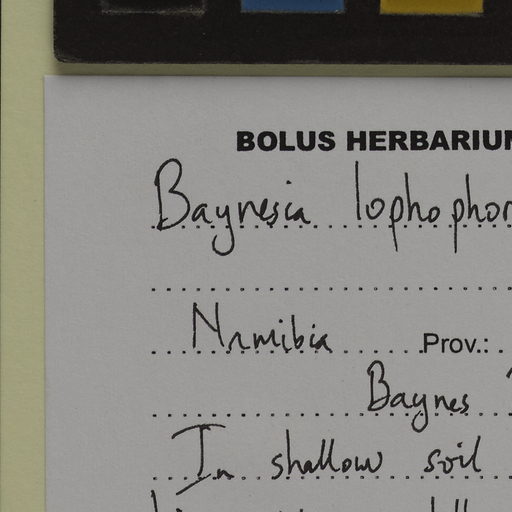 BOLUS HERBARIUM
Baynesia lophophor
Namibia Prov.:
Baynes
In shallow soil